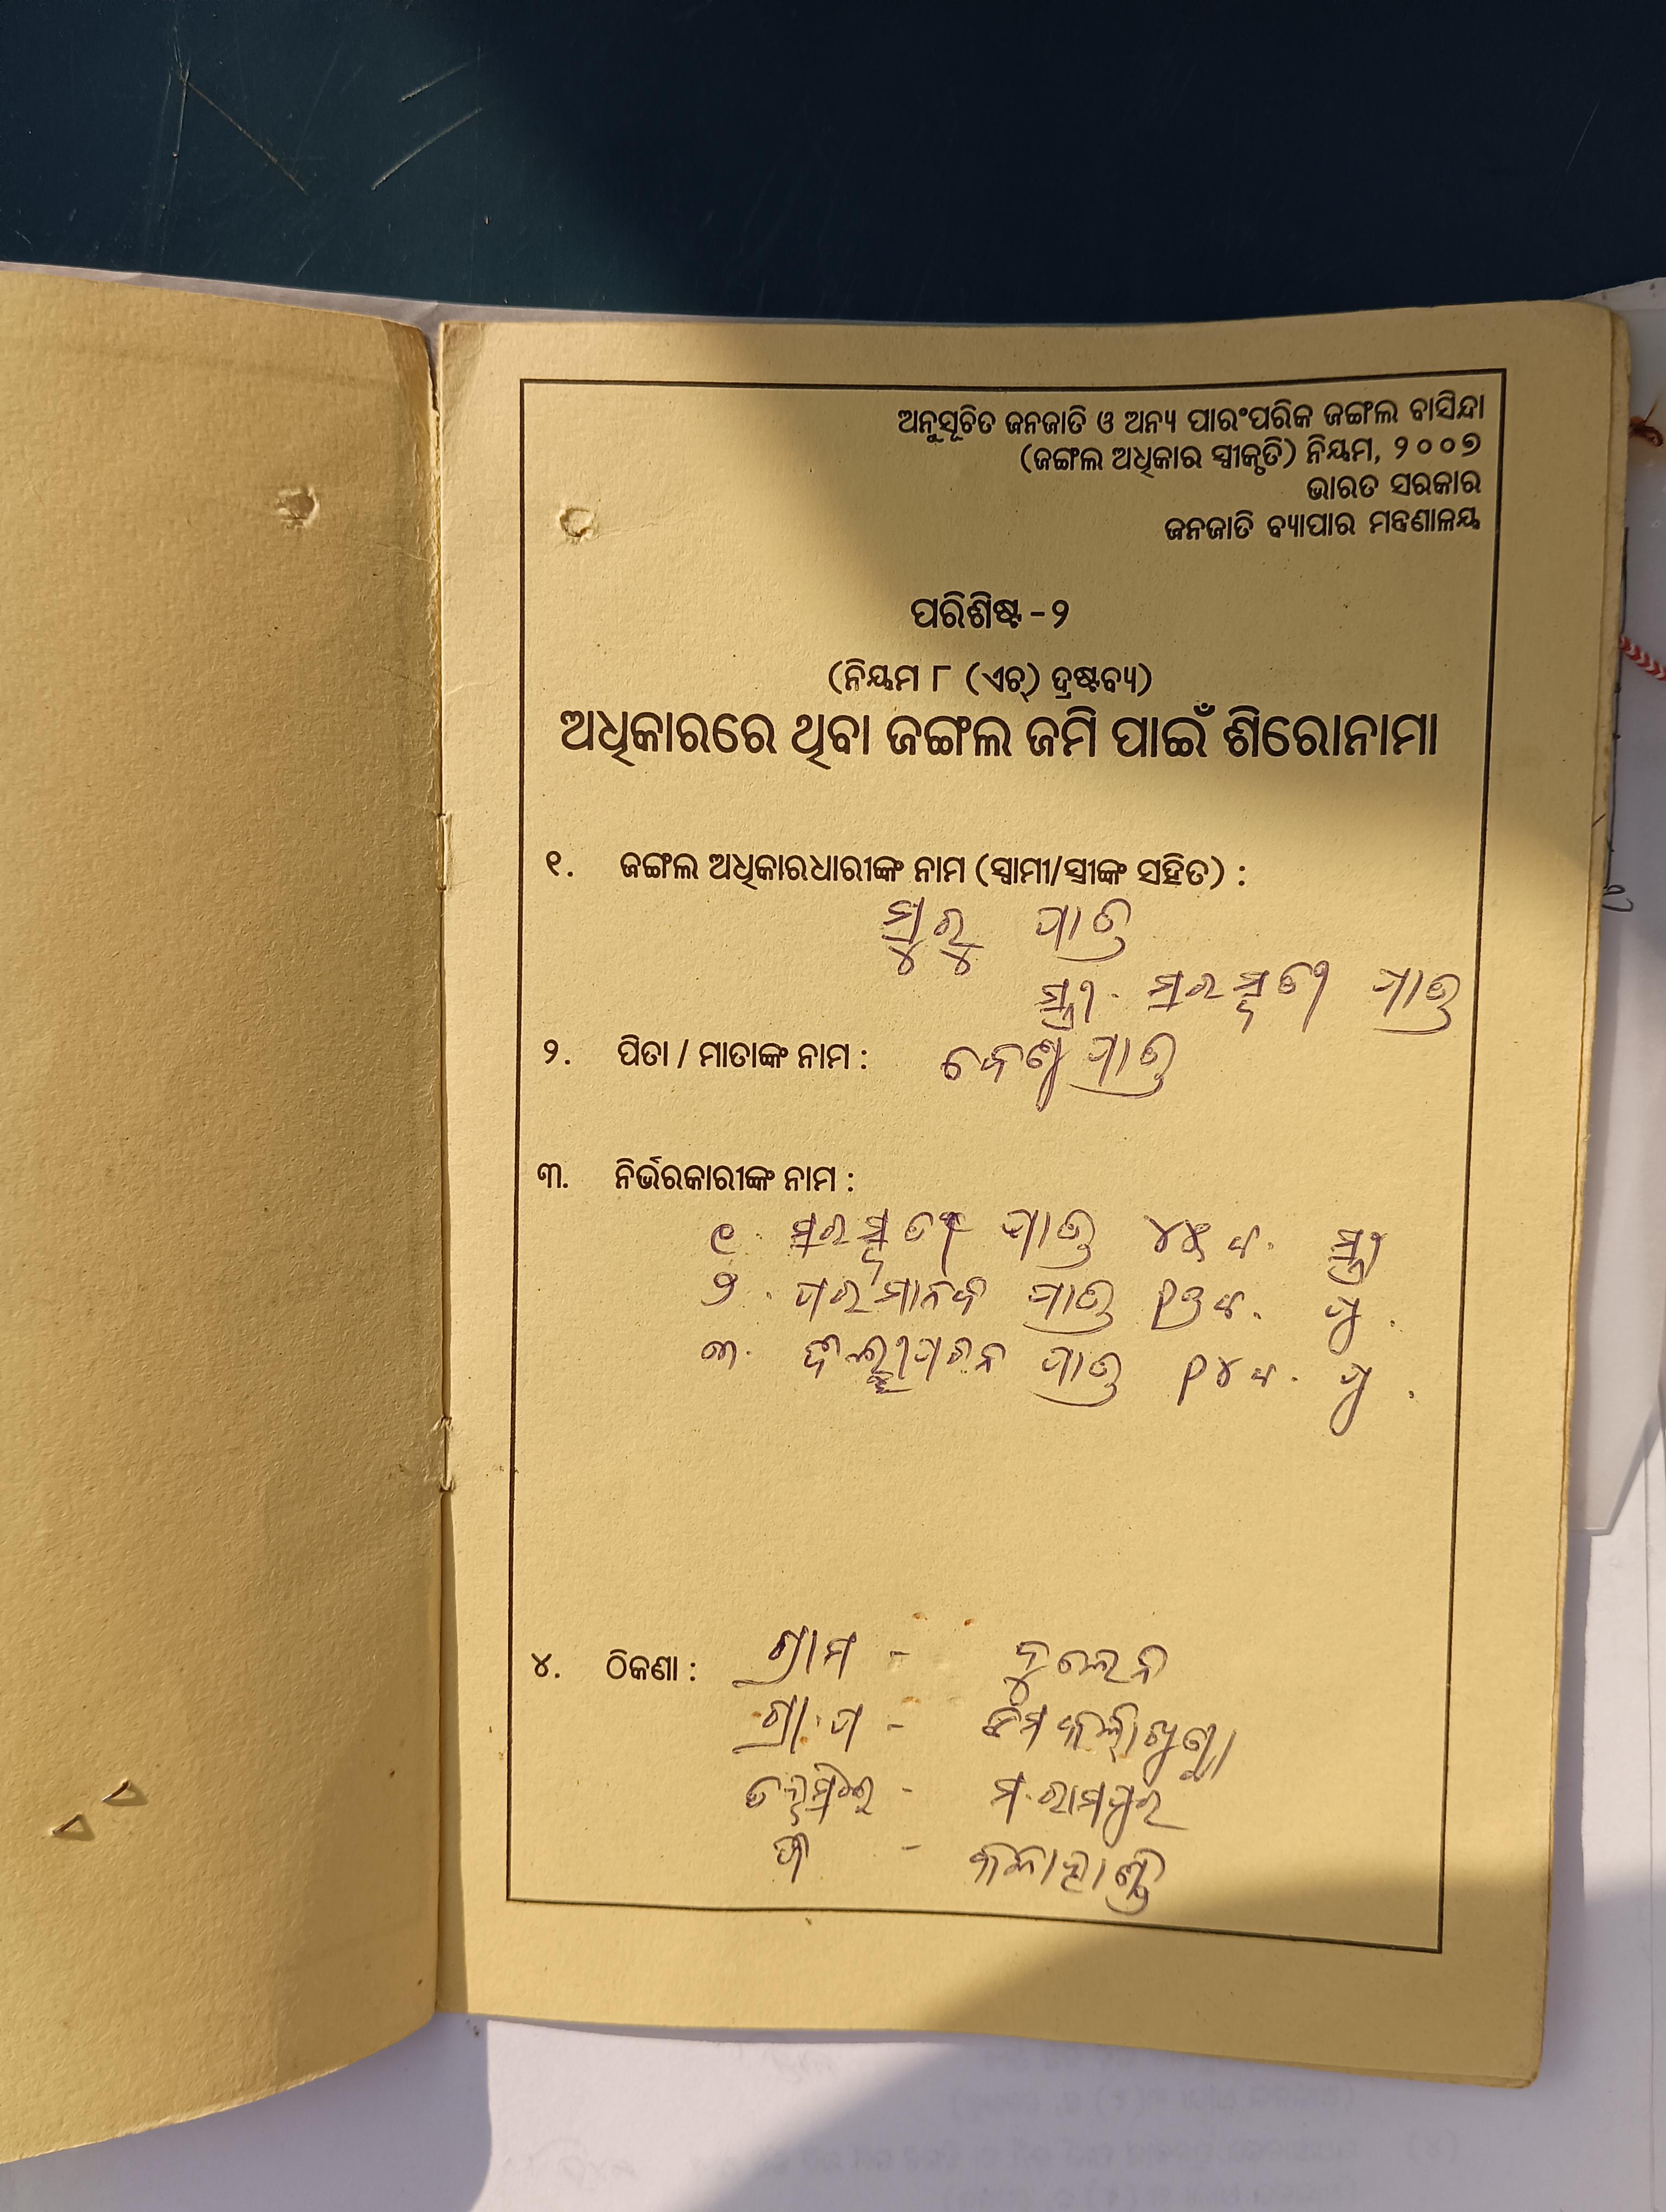 ଅନୁସୂଚିତ ଜନଜାତି ଓ ଅନ୍ୟ ପାରଂପରିକ ଜଙ୍ଗଲ ବାସିନ୍ଦା
(ଜଙ୍ଗଲ ଅଧିକାର ସ୍ୱୀକୃତି) ନିୟମ, ୨୦୦୭
ଭାରତ ସରକାର
ଜନଜାତି ବ୍ୟାପାର ମନ୍ତ୍ରଣାଳୟ
ପରିଶିଷ୍ଟ - ୨
(ନିୟମ ୮ (ଏଚ୍) ଦ୍ରଷ୍ଟବ୍ୟ)
ଅଧିକାରରେ ଥିବା ଜଙ୍ଗଲ ଜମି ପାଇଁ ଶିରୋନାମା
୧. ଜଙ୍ଗଲ ଅଧିକାରଧାରୀଙ୍କ ନାମ (ସ୍ୱାମୀ/ସ୍ତ୍ରୀଙ୍କ ସହିତ) :
ସୁରୁ ପାତ୍ର
ସ୍ତ୍ରୀ. ସରସ୍ୱତୀ ପାତ୍ର
୨. ପିତା / ମାତାଙ୍କ ନାମ : ପାତ୍ର
୩. ନିର୍ଭରକାରୀଙ୍କ ନାମ :
୧. ସରସ୍ୱତୀ ପାତ୍ର ୪୫ ବ. ସ୍ତ୍ରୀ
୨. ପରମାନନ୍ଦ ପାତ୍ର ବ. ପୁ.
୩. ପାତ୍ର ୧୪ ବ. ପୁ.
୪. ଠିକଣା : ଗ୍ରାମ -
ଗ୍ରା.ପ -
- ମ.ରାମପୁର
ଜି - କଳାହାଣ୍ଡି